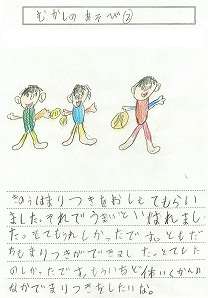 むかしの あそび②
きのうはまりつきをおしえてもらい
ました。それでうまいといはれまし
た。とてもうれしかったです。ともだ
ちもまりつきができました。とてもた
のしかったです。もういちど 体いくかんの
なかでまりつきをしたいな。